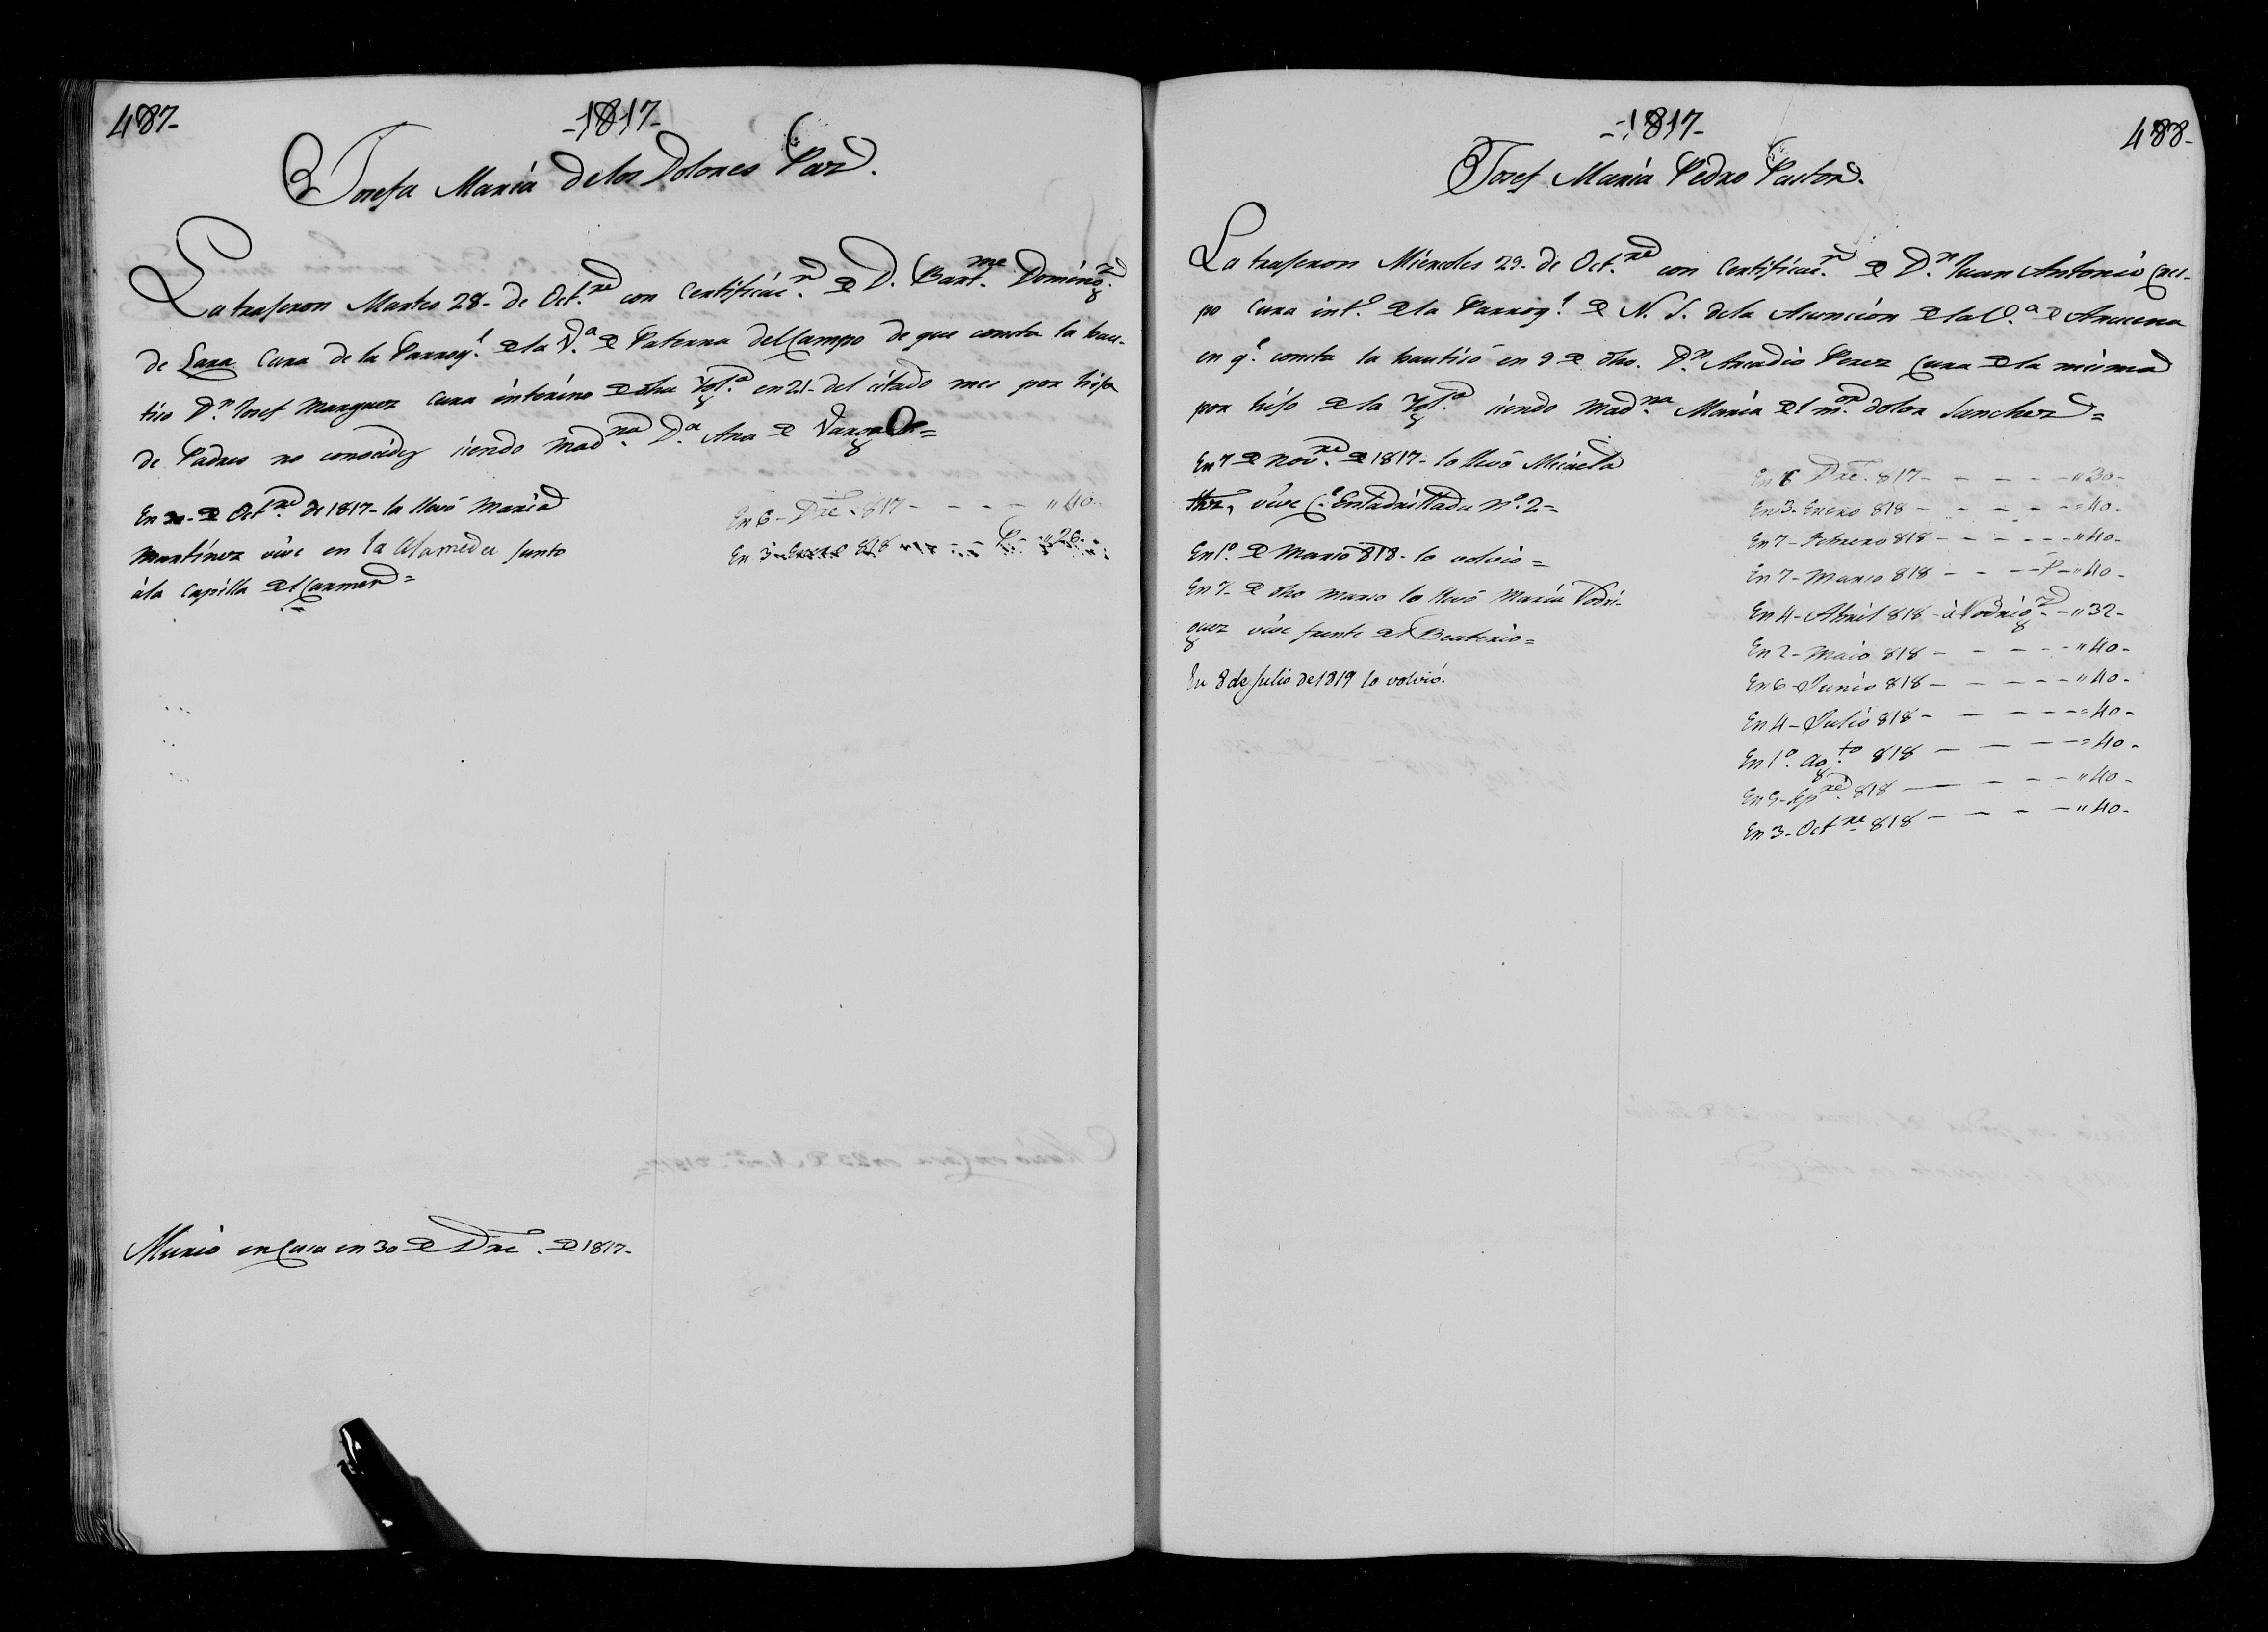 487-
-1817-
Josefa María de los Dolores Paz.
La trageron Martes 28- de Oct.re con Certificac.n de D. Bart.me Doming.z
de Lara Cura de la Parroq.l de la V.a de Paterna del Campo de que consta la bau-
tiso D.n Josef Marquez Cura interino de dha Ygl.a en 21- del citado mes por hija
de Padres no conocidos siendo Mad.na D.a Ana de Vargas=
En 30- de Oct.re de 1817- la llevó María
Martínez vive en la Alameda junto
à la Capilla del Carmen=
En 6- Dre. 817- - - - - "40-
En 3- Enero 818 - - - - P- "26-
Murió en Casa en 30 de Dre. de 1817-
-1817-
488-
Josef María Pedro Pastor.
La trageron Miercoles 29- de Oct.re con Certificac.n de D.n Juan Antonio Cres-
po Cura int.o de la Parroq.l de N. S. de la Asunción de la V.a de Aracena
en q.e consta la bautisó en 9 de dho. D.n Arcadio Perez Cura de la misma
por hijo de la Ygl.a siendo Mad.na María del m.or dolor Sanchez=
En 7 de Nov.re de 1817- lo llevó Micaela
vive C.e Enladrillada N.o 2=
En 1.o de Marzo 818- lo volvió=
En 7- de dho Marzo lo llevó María Rodri-
guez vive frente del Beaterio=
En 8 de Julio de 1819 lo volvió.
En 6 Dre. 817- - - - - "30-
En 3- Enero 818 - - - - - =40-
En 7- Febrero 818 - - - - - "40-
En 7- Marzo 818 - - - P- "40-
En 4- Abril 818- à Rodrig.z - "32-
En 2- Maio 818 - - - - - "40-
En 6- Junio 818 - - - - - "40-
En 4- Julio 818 - - - - - =40-
En 1.o Ag.to 818 - - - - =40-
En 5- Sep.re 818 - - - - "40-
En 3- Oct.re 818 - - - - "40-